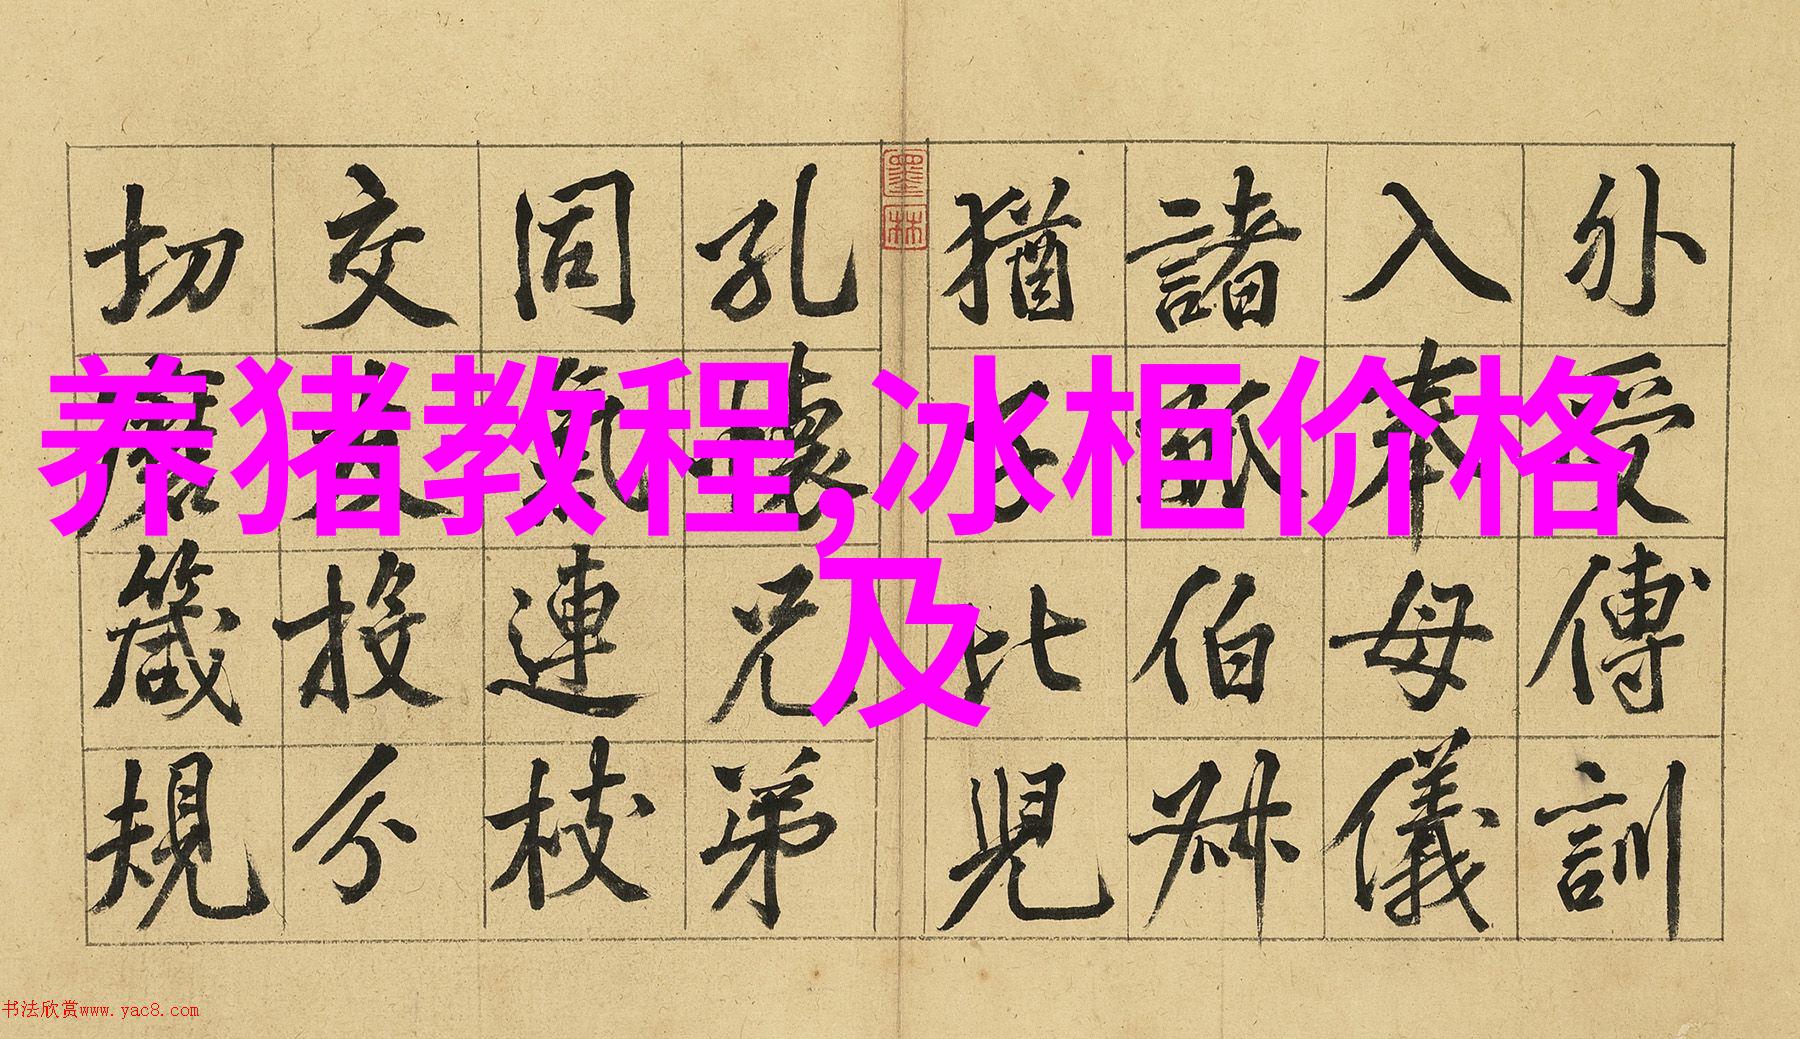 养猪教程,冰柜价格
及
外受傅訓
入奉母儀
諸姑伯叔
猶子比兒
墨林
孔懷兄弟
同氣連枝
交友投分
切磨箴規
书法欣赏www.yac8.com